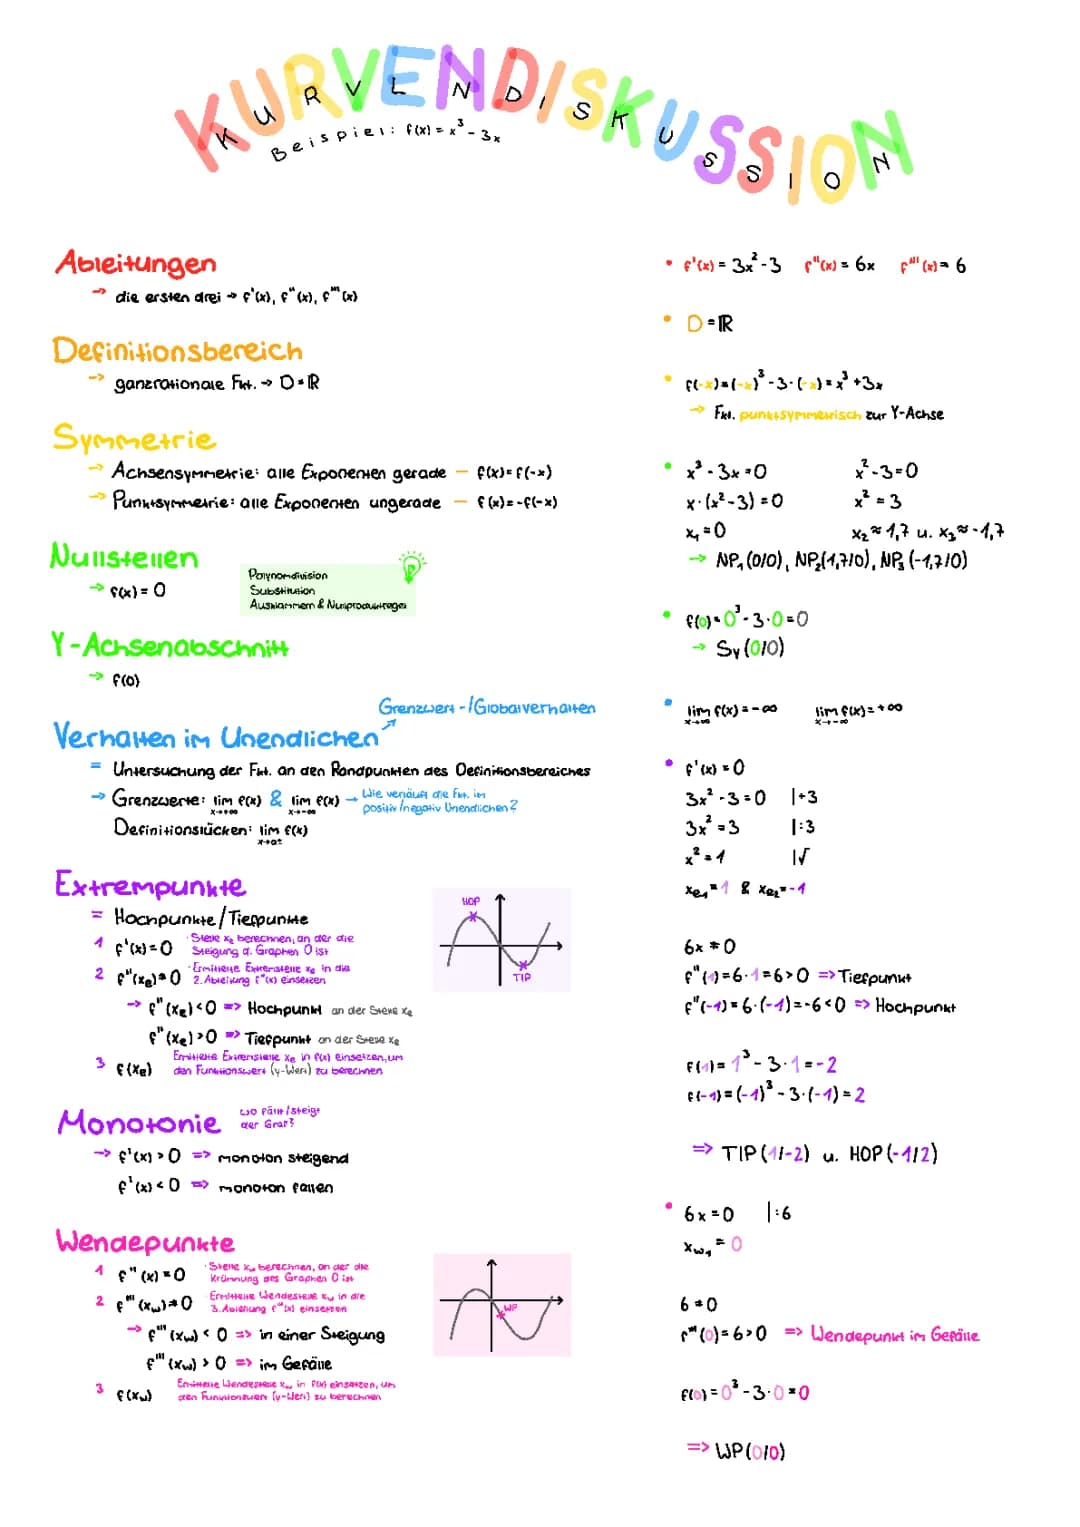 KURVENDISKUSSION
Beispiel: f(x) = x³ - 3x
Ableitungen
→ die ersten drei → f'(x), f"(x), f'''(x)
Definitionsbereich
→ ganzrationale Fkt. → D=ℝ
Symmetrie
→ Achsensymmetrie: alle Exponenten gerade – f(x)=f(-x)
→ Punktsymmetrie: alle Exponenten ungerade – f(x)=-f(-x)
Nullstellen
→ f(x) = 0
Polynomdivision
Substitution
Ausklammern & Nullproduktregel
Y-Achsenabschnitt
→ f(0)
Grenzwert-/Globalverhalten
Verhalten im Unendlichen
= Untersuchung der Fkt. an den Randpunkten des Definitionsbereiches
→ Grenzwerte: lim f(x) & lim f(x) → Wie verläuft die Fkt. im
x→+∞ x→-∞ positiv/negativ Unendlichen?
Definitionslücken: lim f(x)
x→a±
Extrempunkte
= Hochpunkte/Tiefpunkte
1 f'(x)=0 · Stelle xₑ berechnen, an der die
Steigung d. Graphen 0 ist
2 f"(xₑ)≠0 · Ermittelte Extremstelle xₑ in die
2. Ableitung f"(x) einsetzen
→ f"(xₑ)<0 => Hochpunkt an der Stelle xₑ
f"(xₑ)>0 => Tiefpunkt an der Stelle xₑ
3 f(xₑ) Ermittelte Extremstelle xₑ in f(x) einsetzen, um
den Funktionswert (y-Wert) zu berechnen
HOP
TIP
Monotonie wo fällt/steigt
der Graf?
→ f'(x) > 0 => monoton steigend
f'(x) < 0 => monoton fallen
Wendepunkte
1 f"(x)=0 · Stelle x_w berechnen, an der die
Krümmung des Graphen 0 ist
2 f'''(x_w)≠0 · Ermittelte Wendestelle x_w in die
3. Ableitung f'''(x) einsetzen
→ f'''(x_w) < 0 => in einer Steigung
f'''(x_w) > 0 => im Gefälle
3 f(x_w) Ermittelte Wendestelle x_w in f(x) einsetzen, um
den Funktionswert (y-Wert) zu berechnen
WP
• f'(x) = 3x²-3 f"(x) = 6x f'''(x) = 6
• D=ℝ
• f(-x)=(-x)³-3·(-x)=x³+3x
→ Fkt. punktsymmetrisch zur Y-Achse
• x³-3x=0 x²-3=0
x·(x²-3)=0 x²=3
x₁=0 x₂≈1,7 u. x₃≈-1,7
→ NP₁(0/0), NP₂(1,7/0), NP₃(-1,7/0)
• f(0)=0³-3·0=0
→ Sy(0/0)
• lim f(x)=-∞ lim f(x)=+∞
x→∞ x→-∞
• f'(x)=0
3x²-3=0 |+3
3x²=3 |:3
x²=1 |√
xₑ₁=1 & xₑ₂=-1
6x≠0
f"(1)=6·1=6>0 => Tiefpunkt
f"(-1)=6·(-1)=-6<0 => Hochpunkt
f(1)=1³-3·1=-2
f(-1)=(-1)³-3·(-1)=2
=> TIP(1/-2) u. HOP(-1/2)
• 6x=0 |:6
x_w₁=0
6≠0
f'''(0)=6>0 => Wendepunkt im Gefälle
f(0)=0³-3·0=0
=> WP(0/0)